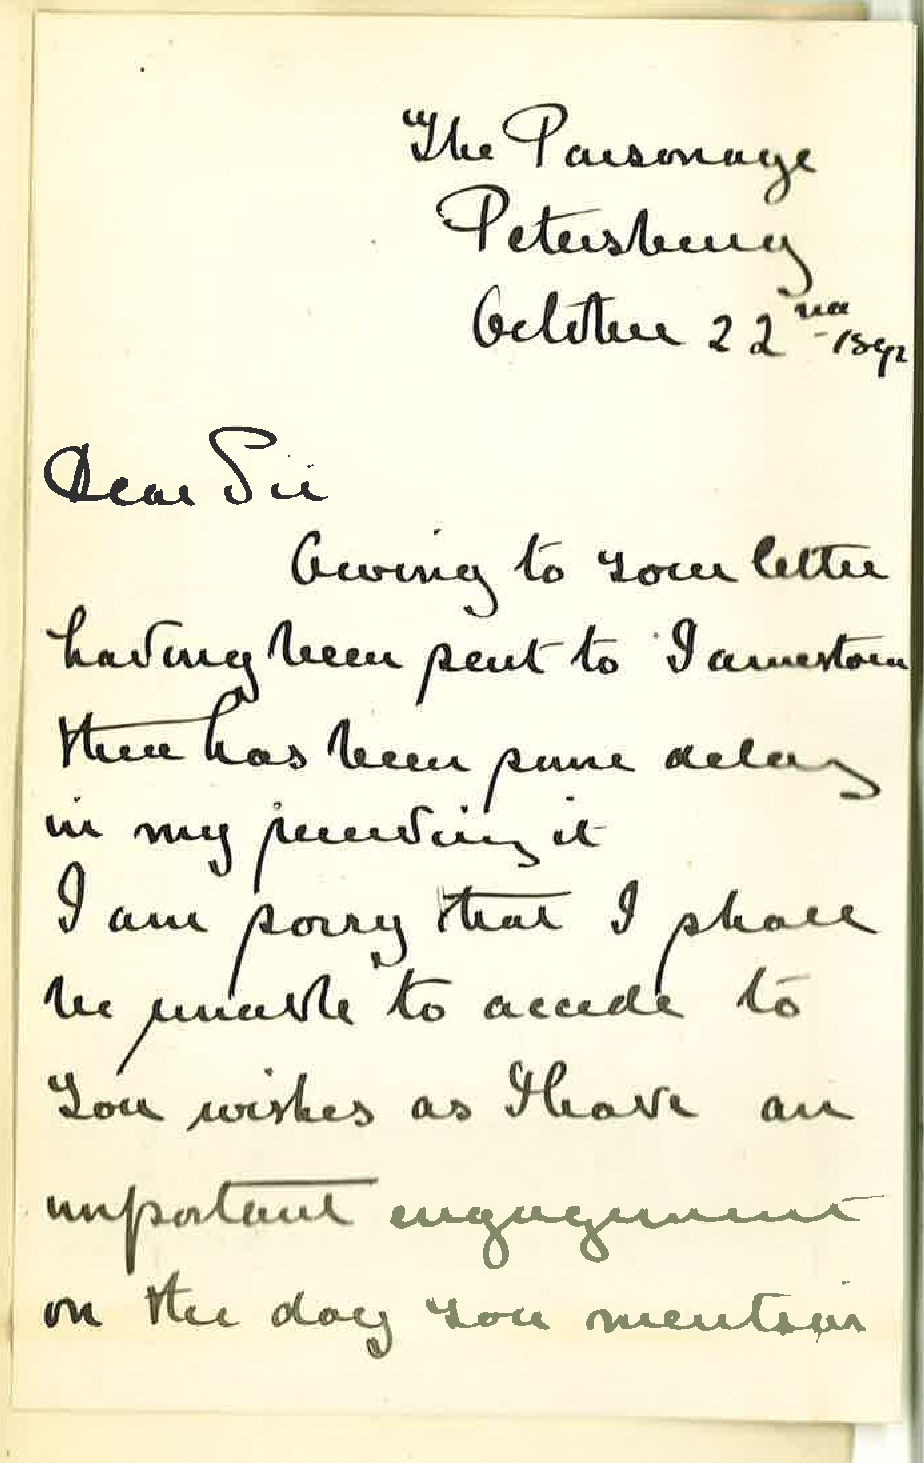 The Parsonage
Petersburg
October 22nd 1892
Dear Sir
Owing to your letter
having been sent to Jamestown
there has been some delay
in my receiving it
I am sorry that I shall
be unable to accede to
your wishes as I have an
important engagement
on the day you mention